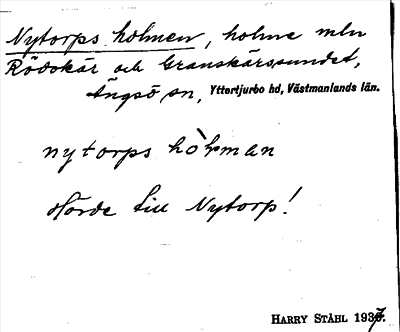 Nytorps holmen, holme mln
Rödskär och Granskärssundet,
Ängsö sn, Yttertjurbo hd, Västmanlands län.
nytorps hòlman
Hörde till Nytorp!
HARRY STÅHL 1937.